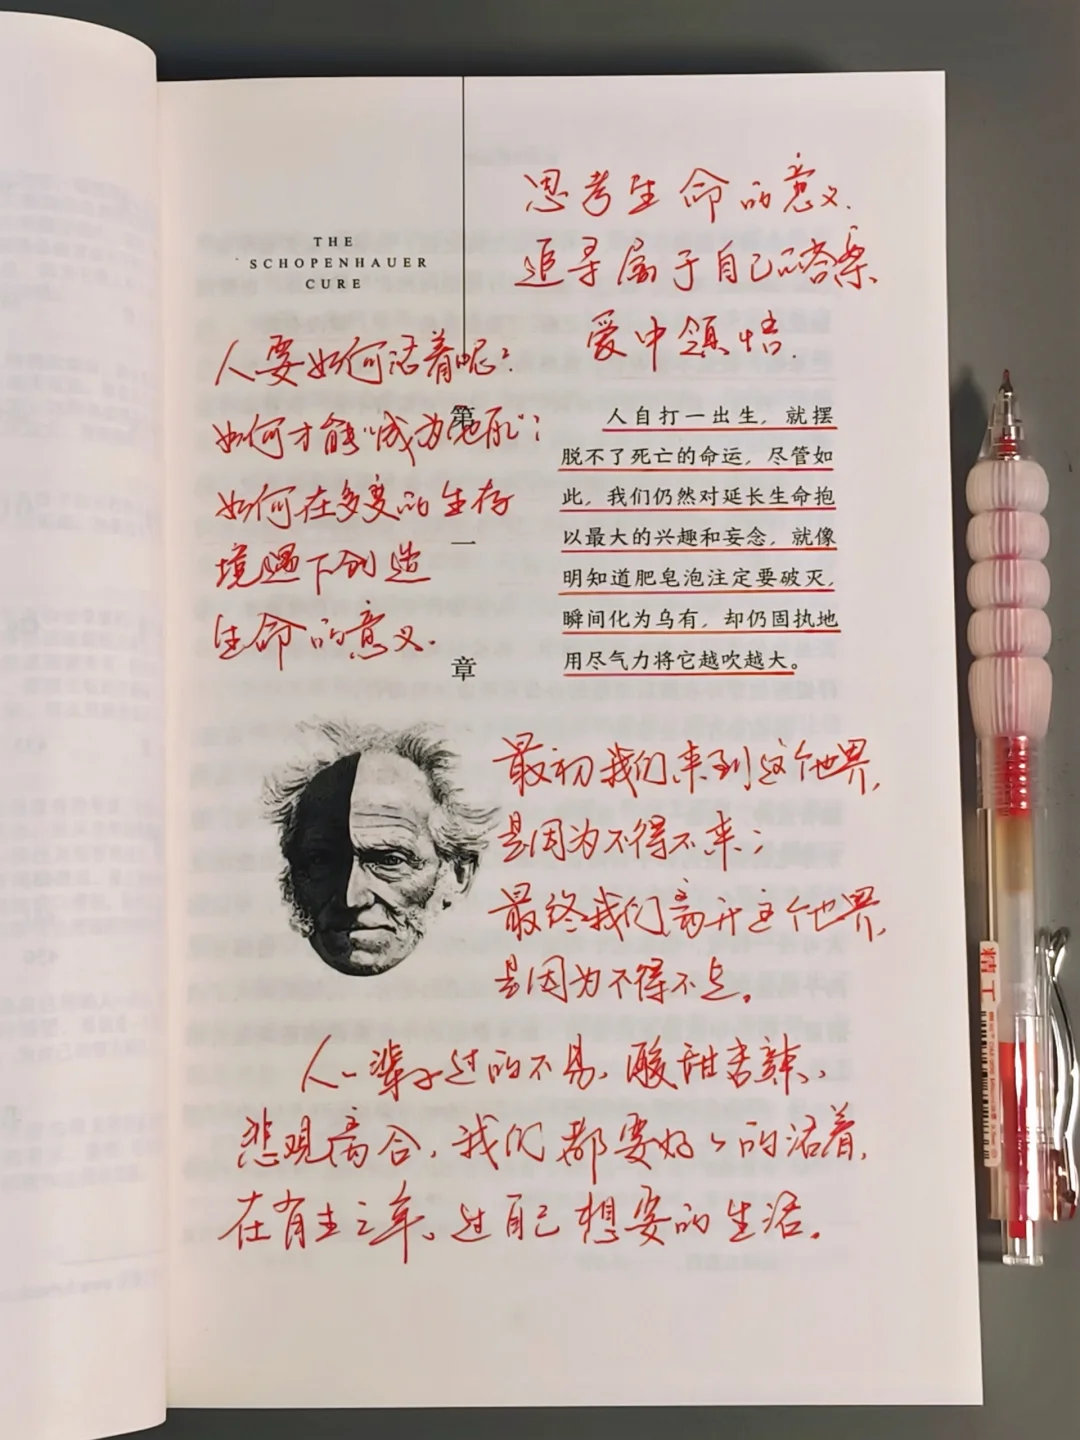 THE
SCHOPENHAUER
CURE
思考生命的意义.
追寻属于自己的答案、
爱中领悟.
人要如何活着呢?
如何才能"成为他所";
如何在多变的生存
境遇下创造
生命的意义.
第
一
章
人自打一出生，就摆
脱不了死亡的命运，尽管如
此，我们仍然对延长生命抱
以最大的兴趣和妄念，就像
明知道肥皂泡注定要破灭，
瞬间化为乌有，却仍固执地
用尽气力将它越吹越大。
最初我们来到这个世界,
是因为不得不来;
最终我们离开这个世界,
是因为不得不走。
人一辈子过的不易,酸甜苦辣、
悲观离合,我们都要好好的活着,
在有生之年。过自己想要的生活。
精工